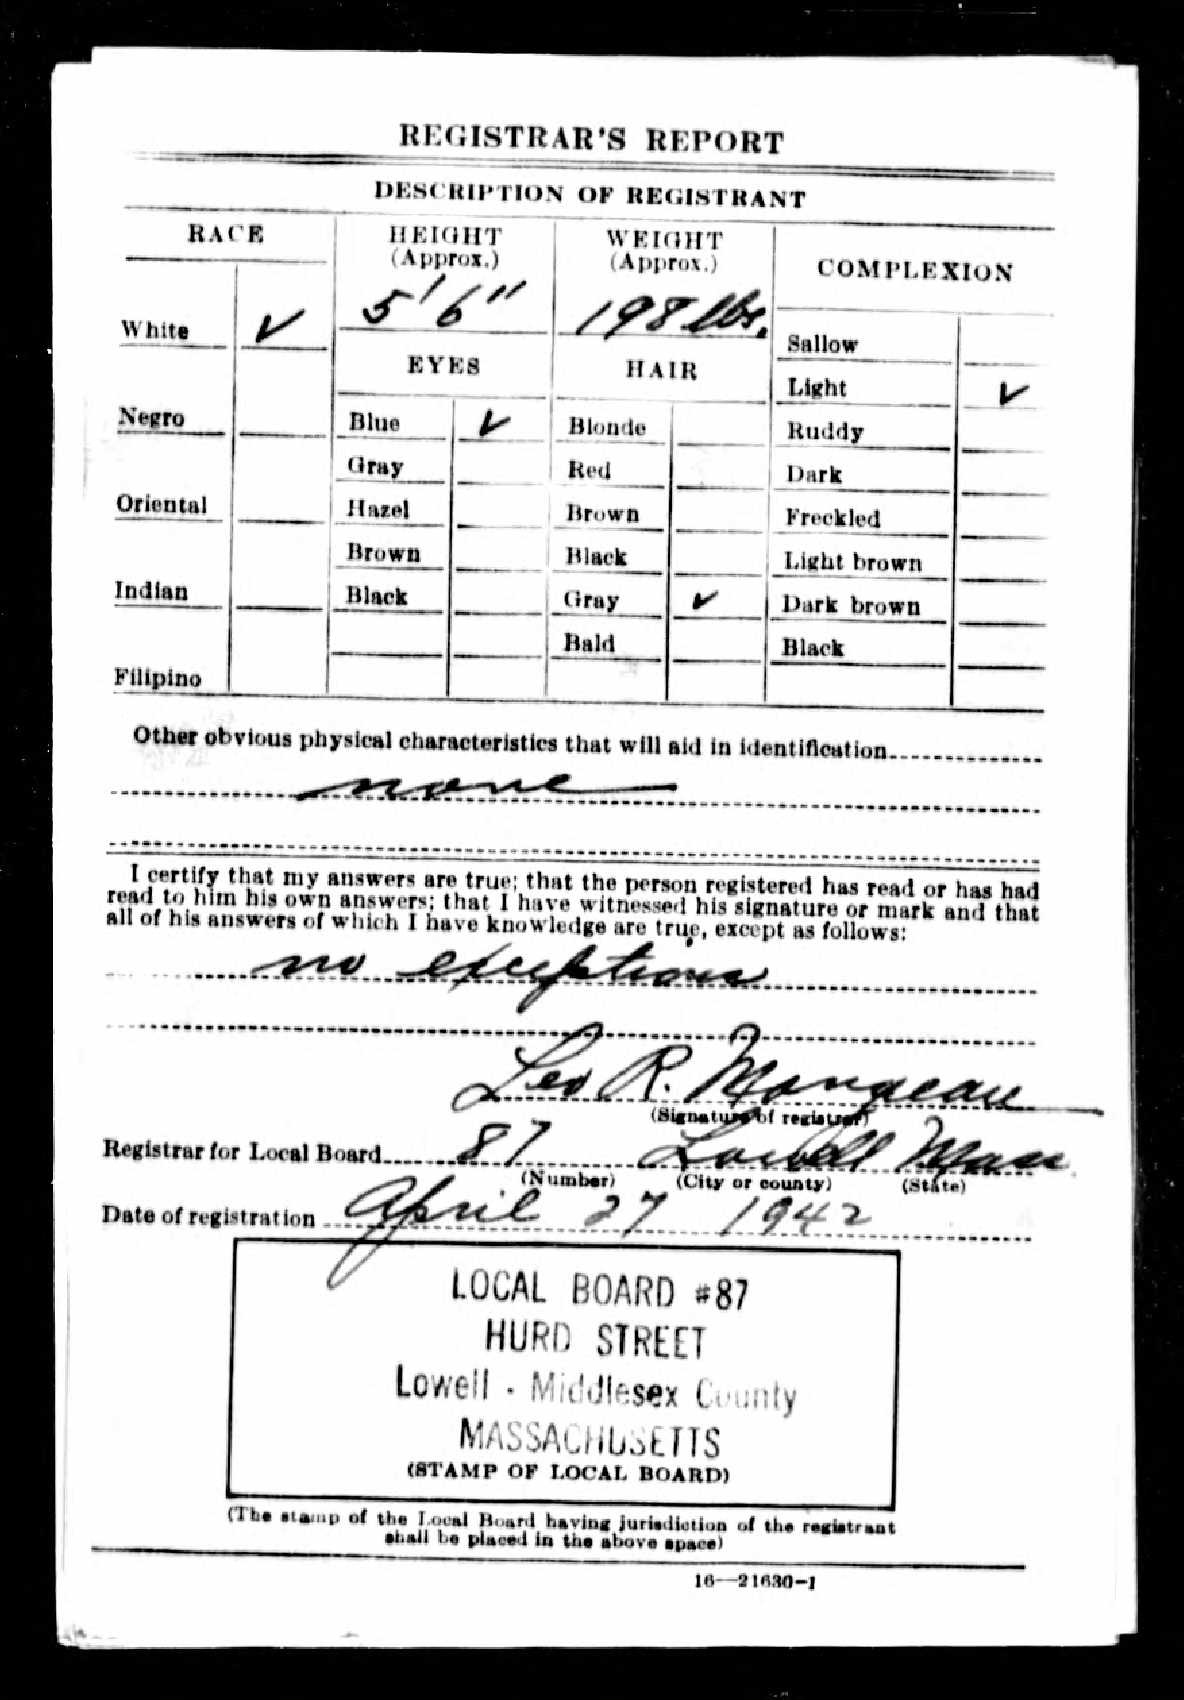 REGISTRAR'S REPORT
DESCRIPTION OF REGISTRANT
RACE
HEIGHT
(Approx.)
WEIGHT
(Approx.)
COMPLEXION
5' 6"
198 lbs.
White ✓
EYES
HAIR
Sallow
Light ✓
Negro
Blue ✓
Blonde
Ruddy
Gray
Red
Dark
Oriental
Hazel
Brown
Freckled
Brown
Black
Light brown
Indian
Black
Gray ✓
Dark brown
Bald
Black
Filipino
Other obvious physical characteristics that will aid in identification
none
I certify that my answers are true; that the person registered has read or has had
read to him his own answers; that I have witnessed his signature or mark and that
all of his answers of which I have knowledge are true, except as follows:
no exceptions
Leo R. Mongeau
(Signature of registrar)
Registrar for Local Board 87 Lowell Mass
(Number) (City or county) (State)
Date of registration April 27 1942
LOCAL BOARD #87
HURD STREET
Lowell - Middlesex County
MASSACHUSETTS
(STAMP OF LOCAL BOARD)
(The stamp of the Local Board having jurisdiction of the registrant
shall be placed in the above space)
16—21630-1